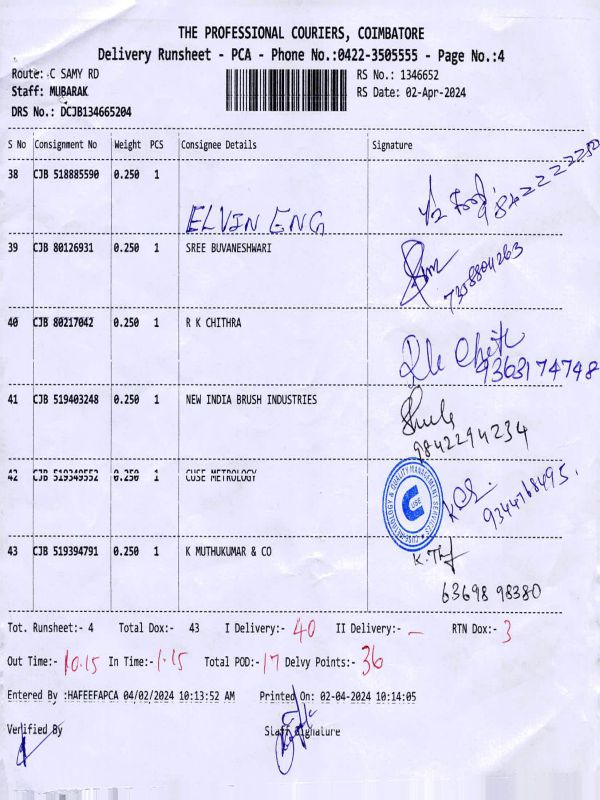 THE PROFESSIONAL COURIERS, COIMBATORE
Delivery Runsheet - PCA - Phone No.:0422-3505555 - Page No.:4
Route: C SAMY RD
RS No.: 1346652
Staff: MUBARAK
RS Date: 02-Apr-2024
DRS No.: DCJB134665204
S No Consignment No Weight PCS Consignee Details Signature
38 CJB 518885590 0.250 1
ELVIN ENG
39 CJB 80126931 0.250 1 SREE BUVANESHWARI
7358804263
40 CJB 80217042 0.250 1 R K CHITHRA
9363174748
41 CJB 519403248 0.250 1 NEW INDIA BRUSH INDUSTRIES
9842294234
42 CJB 519349552 0.250 1 CUSE METROLOGY
CUSE METROLOGY & QUALITY MANAGEMENT SERVICES
CUSE
9344768495.
43 CJB 519394791 0.250 1 K MUTHUKUMAR & CO
63698 98380
Tot. Runsheet:- 4 Total Dox:- 43 I Delivery:- 40 II Delivery:- - RTN Dox:- 3
Out Time:- 10.15 In Time:- 1.15 Total POD:- 17 Delvy Points:- 36
Entered By :HAFEEFAPCA 04/02/2024 10:13:52 AM Printed On: 02-04-2024 10:14:05
Verified By Staff Signature